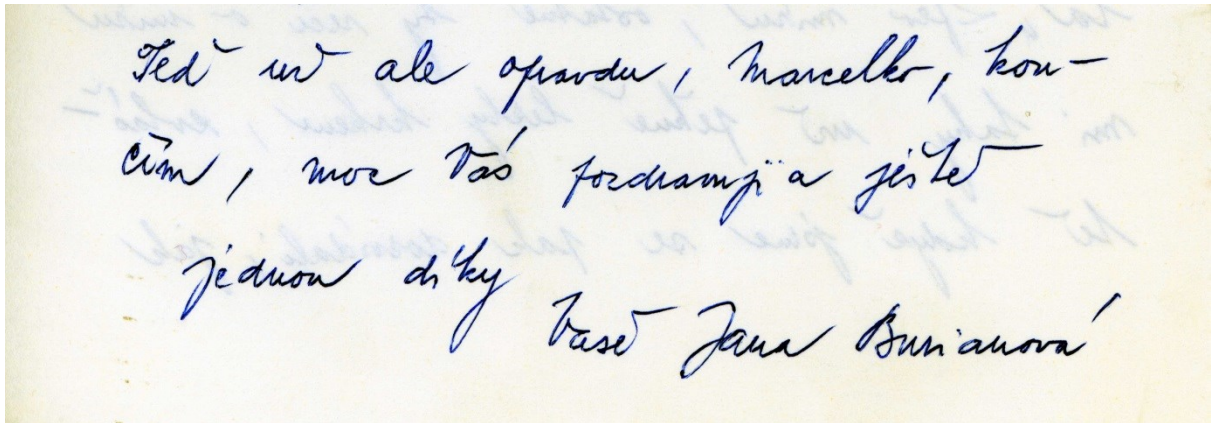 Teď už ale opravdu, Marcelko, kon-
čím, moc Vás pozdravuji a ještě
jednou díky
Vaše Jana Burianová